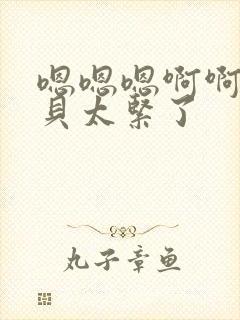 嗯嗯嗯啊啊
贝太紧了
丸子章鱼